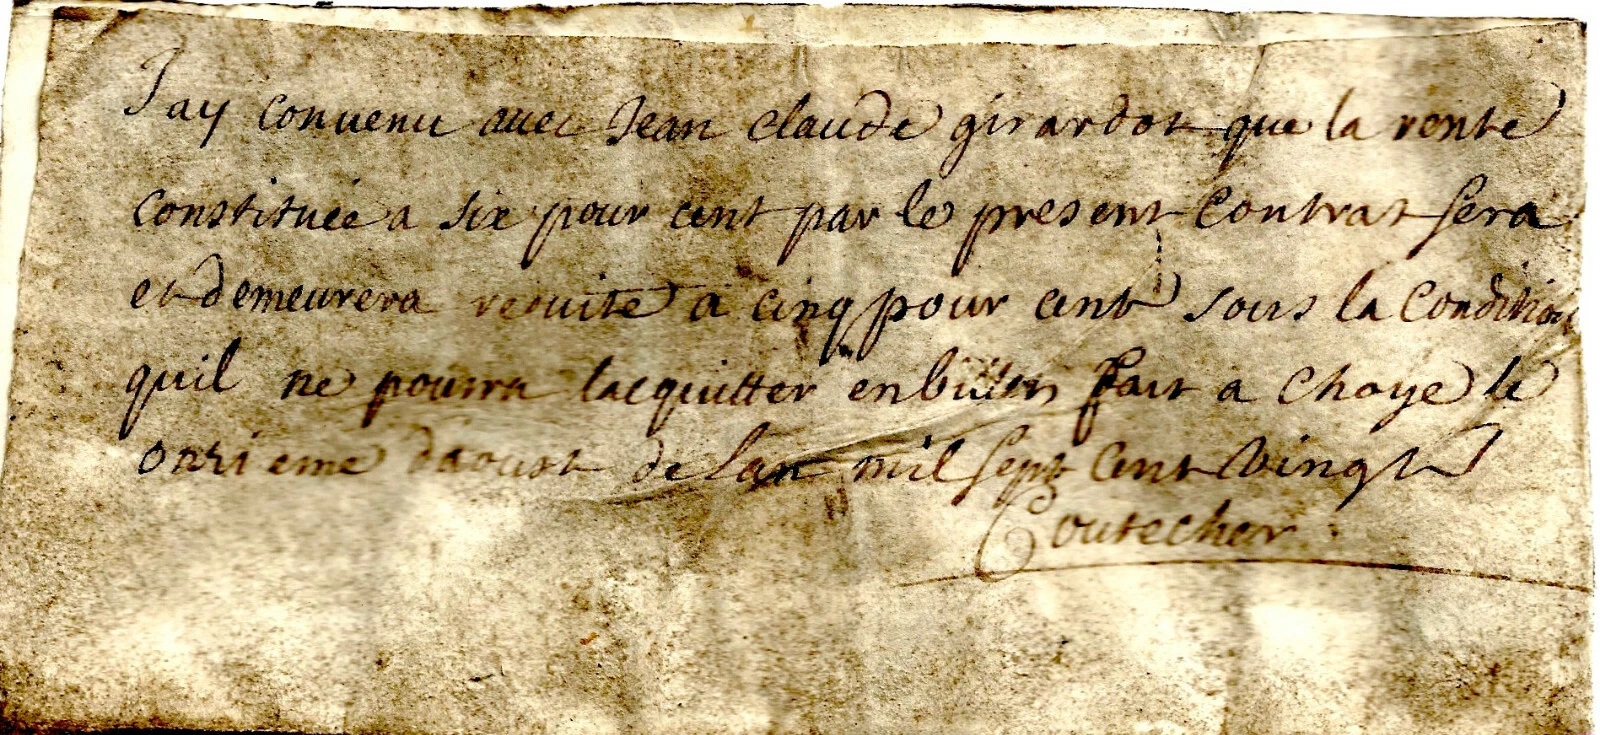 Jay convenu avec Jean claude girardot que la rente
constituée a six pour cent par le present contrat sera
et demeurera reduite a cinq pour cent sous la condition
quil ne pourra lacquitter en billets fait a Choye le
onzieme daoust de lan mil sept cent vingt
Coutecher